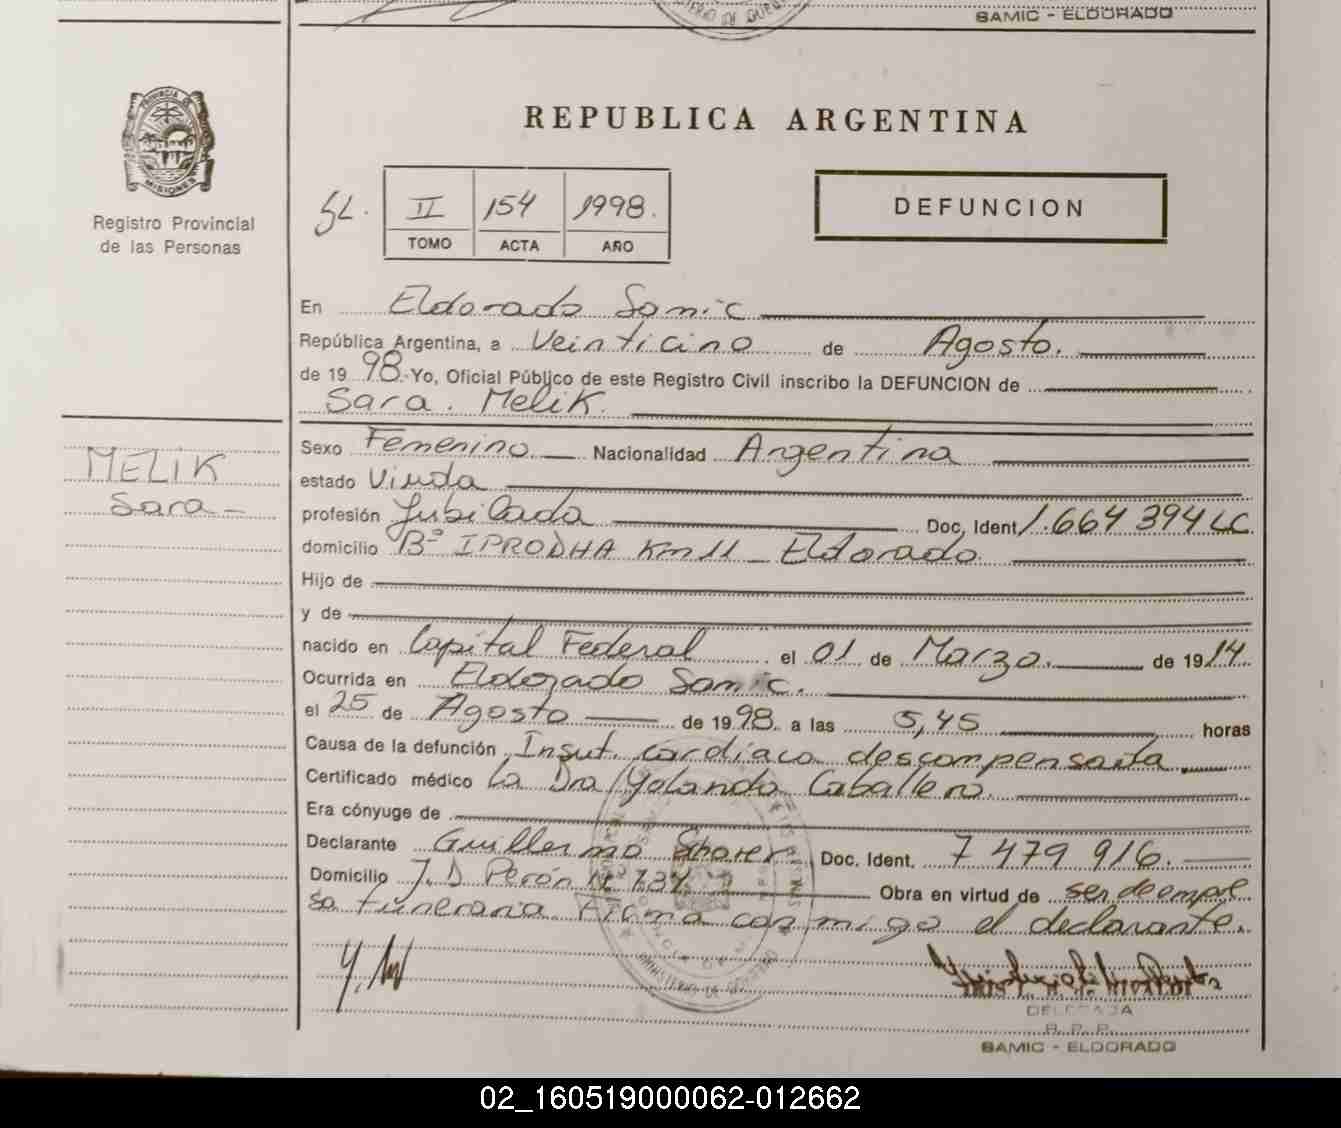 SAMIC - ELDORADO
PROVINCIA DE
MISIONES
Registro Provincial
de las Personas
REPUBLICA ARGENTINA
SL. II 154 1998.
TOMO ACTA AÑO
DEFUNCION
En Eldorado Samic
República Argentina, a Veinticinco de Agosto.
de 19 98. Yo, Oficial Público de este Registro Civil inscribo la DEFUNCION de
Sara. Melik.
MELIK
Sara -
Sexo Femenino Nacionalidad Argentina
estado Viuda
profesión Jubilada Doc. Ident. 1.664 394 LC.
domicilio Bº IPRODHA Km 11 - Eldorado.
Hijo de
y de
nacido en Capital Federal el 01 de Marzo. de 19 14.
Ocurrida en Eldorado Samic.
el 25 de Agosto de 19 98. a las 5,45 horas
Causa de la defunción Insuf. cardiaca descompensada.
Certificado médico La Dra Yolanda Caballero.
Era cónyuge de
Declarante Guillermo Doc. Ident. 7 479 916.
Domicilio J. D Perón Nº 734 Obra en virtud de ser de empre
sa funeraria Firma conmigo el declarante.
DELEGADA
R. P. P.
SAMIC - ELDORADO
02_160519000062-012662